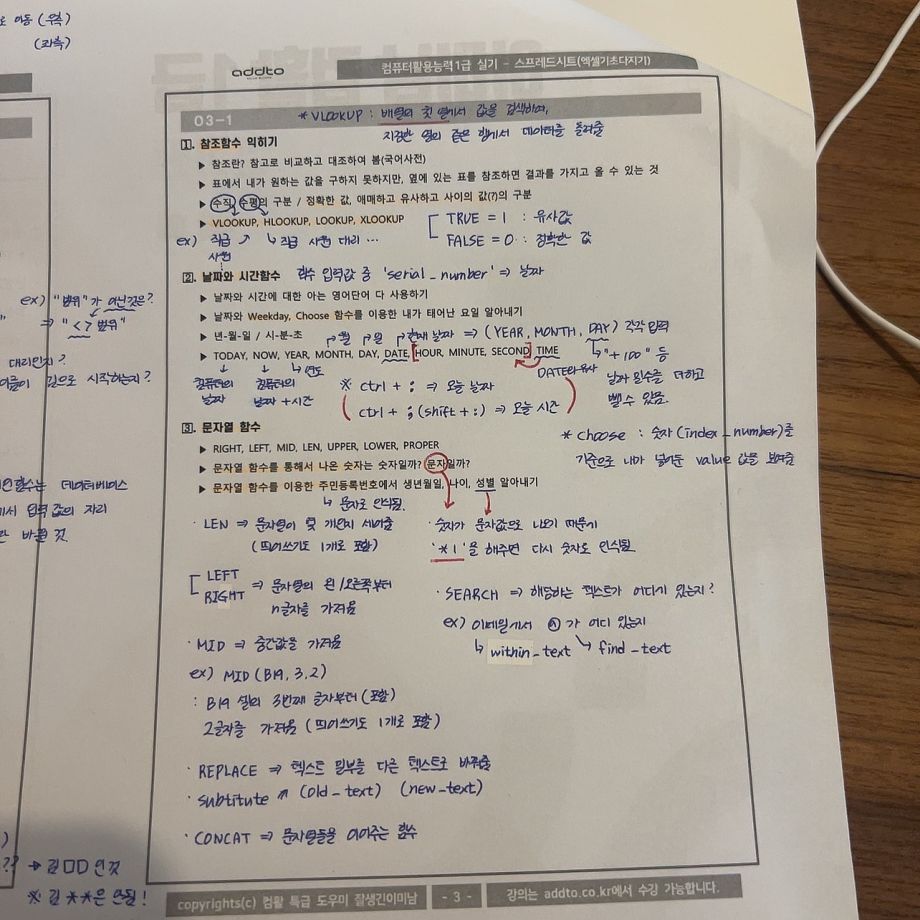 로 이동 (우측)
(좌측)
addto
컴퓨터활용능력1급 실기 - 스프레드시트(엑셀기초다지기)
03-1
* VLOOKUP : 배열의 첫 열에서 값을 검색하여,
지정한 열의 같은 행에서 데이터를 돌려줌
1. 참조함수 익히기
▶ 참조란? 참고로 비교하고 대조하여 봄(국어사전)
▶ 표에서 내가 원하는 값을 구하지 못하지만, 옆에 있는 표를 참조하면 결과를 가지고 올 수 있는 것
▶ 수직, 수평의 구분 / 정확한 값, 애매하고 유사하고 사이의 값(?)의 구분
▶ VLOOKUP, HLOOKUP, LOOKUP, XLOOKUP
TRUE = 1 : 유사값
FALSE = 0 : 정확한 값
ex) 직급 ↗ ↳ 직급 사원 대리 …
사원
⋮
2. 날짜와 시간함수 함수 입력값 중 'serial_number' ⇒ 날짜
▶ 날짜와 시간에 대한 아는 영어단어 다 사용하기
▶ 날짜와 Weekday, Choose 함수를 이용한 내가 태어난 요일 알아내기
▶ 년-월-일 / 시-분-초
월 일 현재 날짜 ⇒ (YEAR, MONTH, DAY) 각각 입력
▶ TODAY, NOW, YEAR, MONTH, DAY, DATE, [HOUR, MINUTE, SECOND] TIME
↳ "+100" 등
컴퓨터의 날짜
컴퓨터의 날짜 + 시간
↳ 연도
DATE와 유사
날짜 일수를 더하고
뺄 수 있음.
※ ctrl + ; ⇒ 오늘 날짜
ctrl + ; (shift + :) ⇒ 오늘 시간
3. 문자열 함수
* choose : 숫자 (index_number)를
기준으로 내가 넣어둔 value 값을 보여줌
▶ RIGHT, LEFT, MID, LEN, UPPER, LOWER, PROPER
▶ 문자열 함수를 통해서 나온 숫자는 숫자일까? 문자일까?
▶ 문자열 함수를 이용한 주민등록번호에서 생년월일, 나이, 성별 알아내기
↳ 문자로 인식됨.
· LEN ⇒ 문자열이 몇 개인지 세어줌
(띄어쓰기도 1개로 포함)
· 숫자가 문자값으로 나오기 때문에
'*1'을 해주면 다시 숫자로 인식됨.
LEFT
RIGHT ⇒ 문자열의 왼/오른쪽부터
n글자를 가져옴
· SEARCH ⇒ 해당하는 텍스트가 어디에 있는지?
ex) 이메일에서 @가 어디 있는지
↳ within_text ↘ find_text
· MID ⇒ 중간값을 가져옴
ex) MID (B19, 3, 2)
: B19 셀의 3번째 글자부터 (포함)
2글자를 가져옴 (띄어쓰기도 1개로 포함)
· REPLACE ⇒ 텍스트 일부를 다른 텍스트로 바꿔줌
· subtitute ↗ (old_text) (new_text)
· CONCAT ⇒ 문자열들을 이어주는 함수
copyrights(c) 컴활 특급 도우미 잘생긴이미남
- 3 -
강의는 addto.co.kr에서 수강 가능합니다.
ex) "범위"가 아닌것은?
⇒ "<>범위"
대리인지?
이름이 김으로 시작하는지?
함수는 데이터베이스
에서 입력값의 자리
만 바뀐 것.
?? → 김□□인것
※ 김**은 안됨!